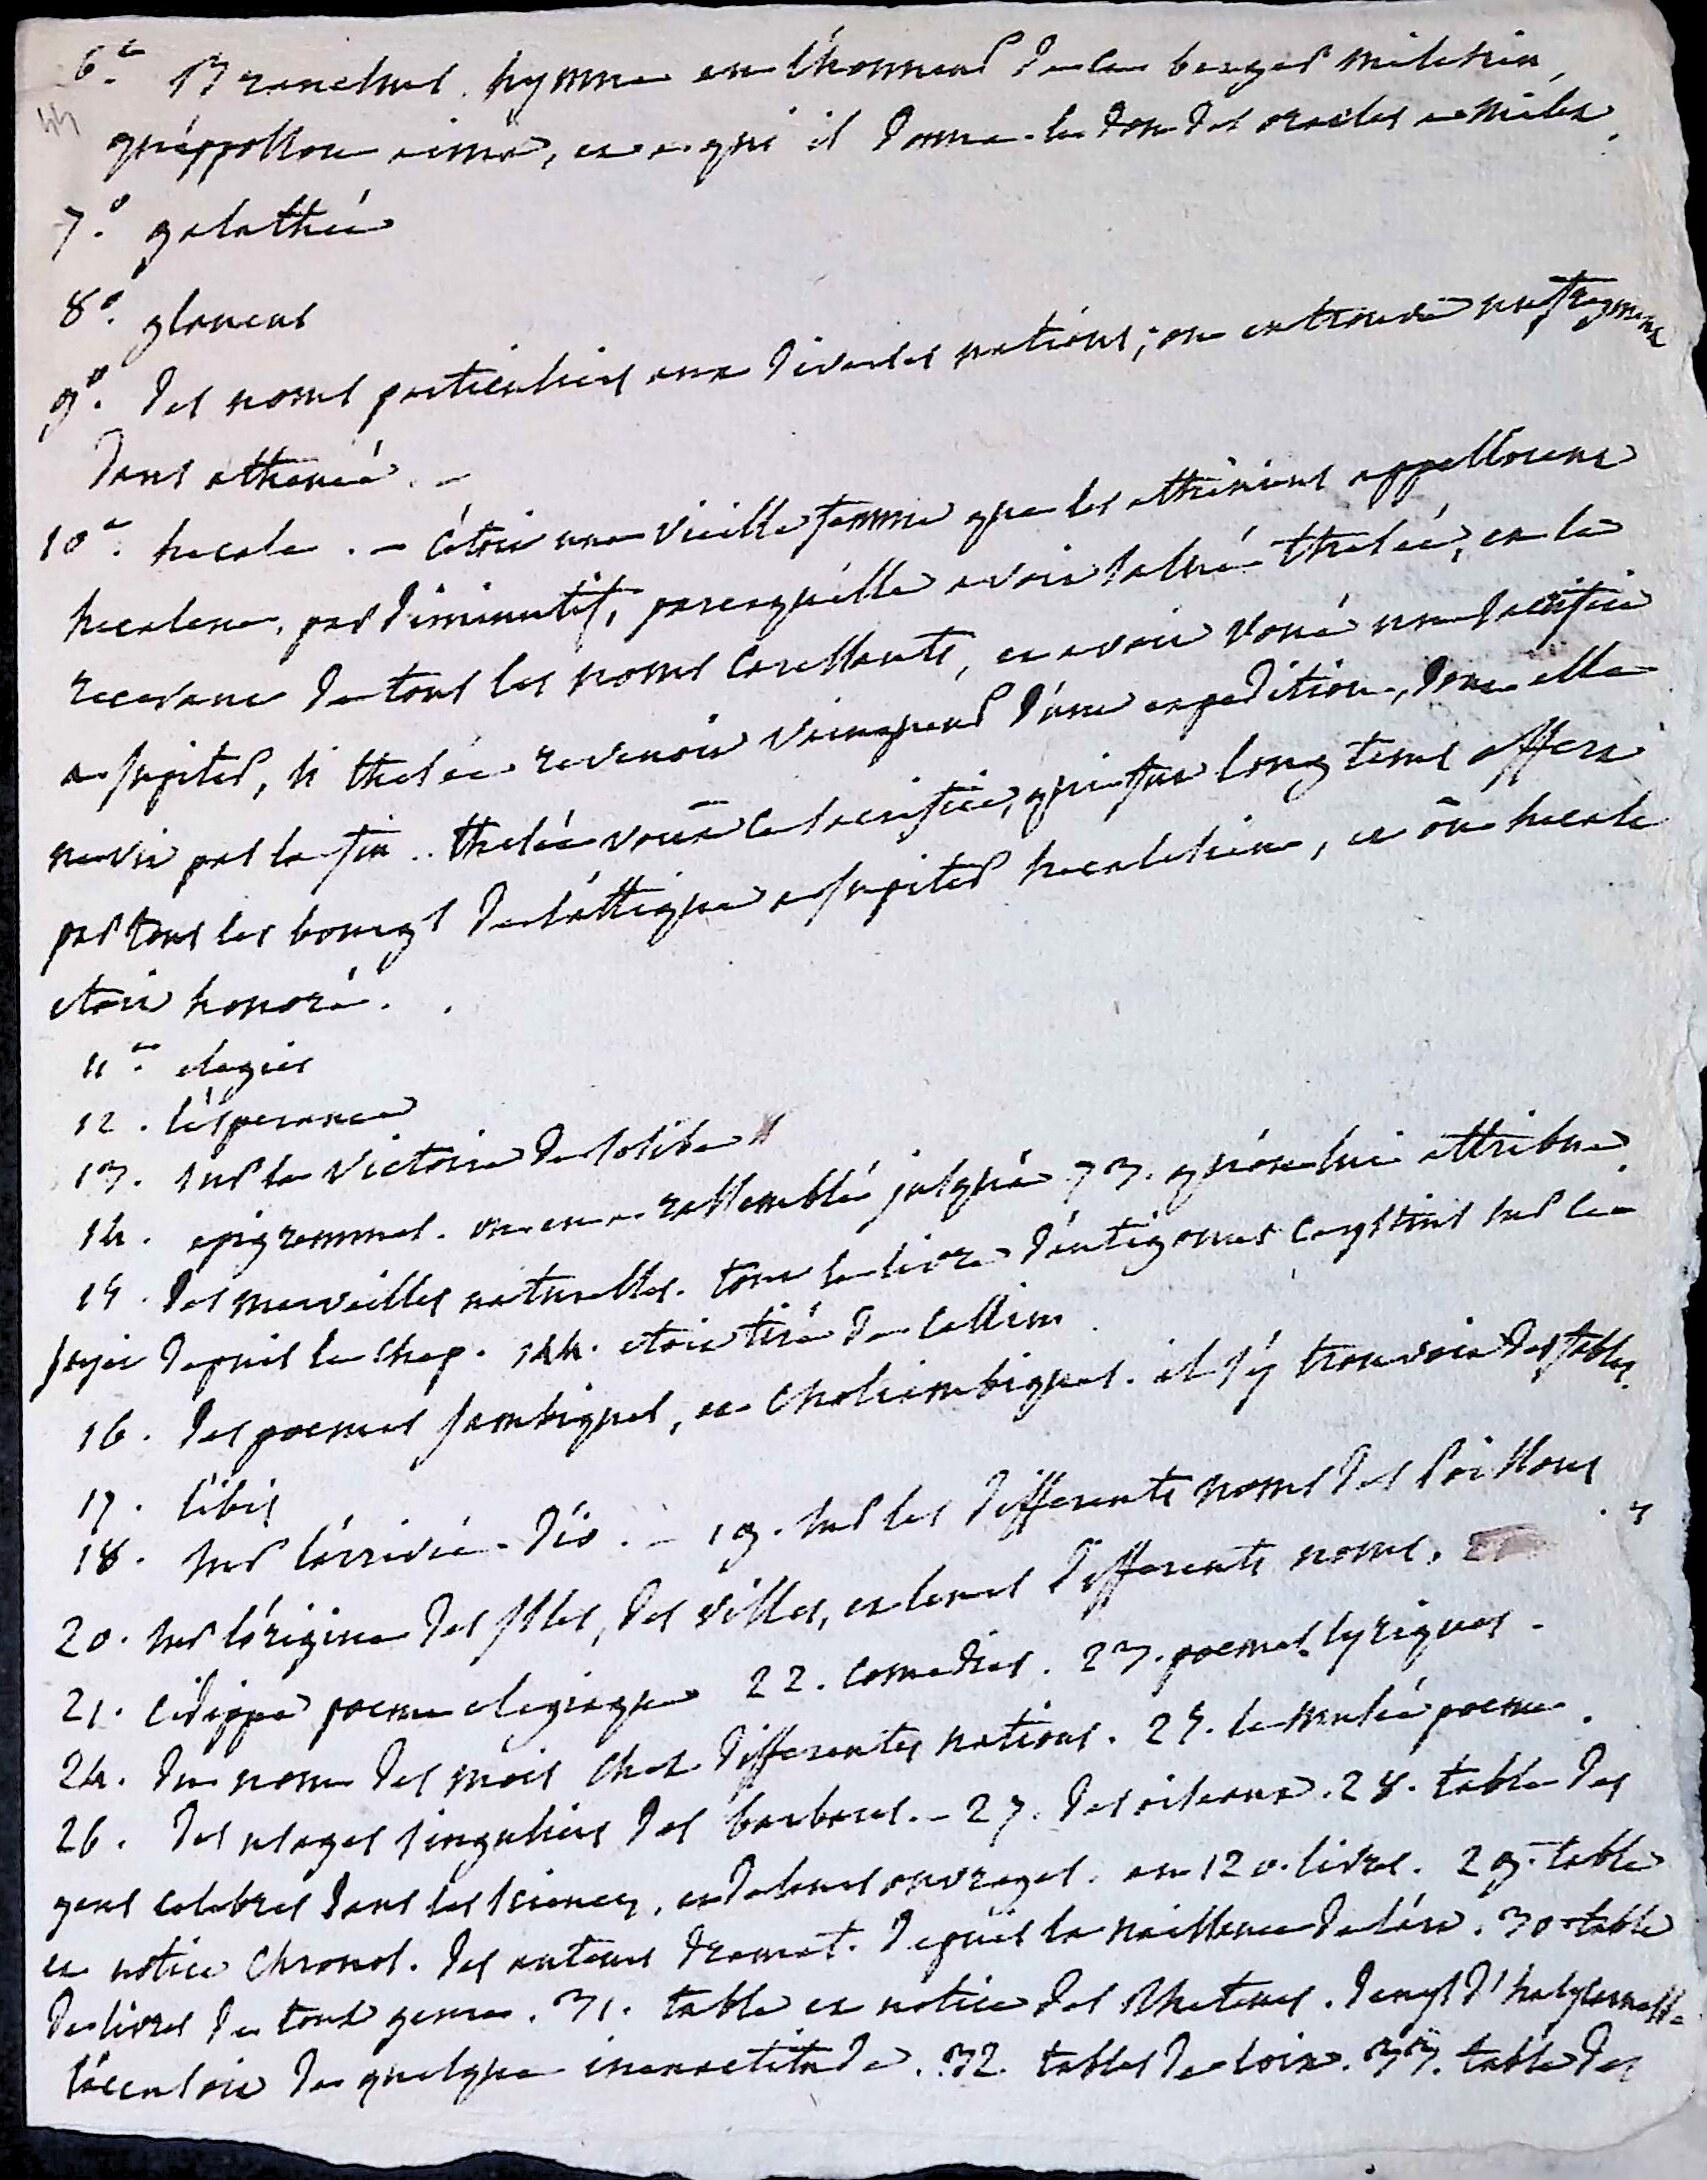 6.° Branchus. hymne en l'honneur de ce berger milesien,
44
qu'appollon aima, et a qui il donna le don des oracles a milet.
7.° galathée
8.° glaucus
9.° des noms particuliers aux diverses nations; on en trouve un fragment
dans athenée. –
10.° hecale. – c'étoit une vieille femme que les atheniens appelloient
hecalene, par diminutif, parcequ'elle avoit salué thesée, en le
recevant de tous les noms caressants, et avoit voué un sacrifice
a jupiter, si thesée revenoit vainqueur d'une expedition, dont elle
ne vit pas la fin.. thesée voua ce sacrifice, qui fut long tems offert
par tous les bourgs de l'attique a jupiter hecalesien, et où hecale
etoit honorée. .
11.° elegies
12. l'esperance
13. sur la victoire de sosibe
14. epigrammes. on en a rassemblé jusqu'a 73. qu'on lui attribue.
15. des merveilles naturelles. tout le livre d'antigonus carystius sur ce
sujet depuis le chap. 144. etoit tiré de callim.
16. des poemes jambiques, et choliambiques. il s'y trouvoit des fables.
17. l'ibis
18. sur l'arrivée d'io. – 19. sur les differents noms des poissons.
20. sur l'origine des isles, des villes, et leurs differents noms.
21. cidippe poeme elegiaque 22. comedies. 23. poemes lyriques.
24. du nom des mois chez differentes nations. 25. le musée poeme.
26. des usages singuliers des barbares. – 27. des oiseaux. 28. table des
gens celebres dans les sciences, et de leurs ouvrages. en 120. livres. 29. table
et notice chronol. des auteurs dramat. depuis la naissance de l'art. 30. table
de livres de tout genre. 31. table et notice des Rheteurs. denys d'halycarnasse
l'accusoit de quelque inexactitude. 32. tables de loix. 33. table des